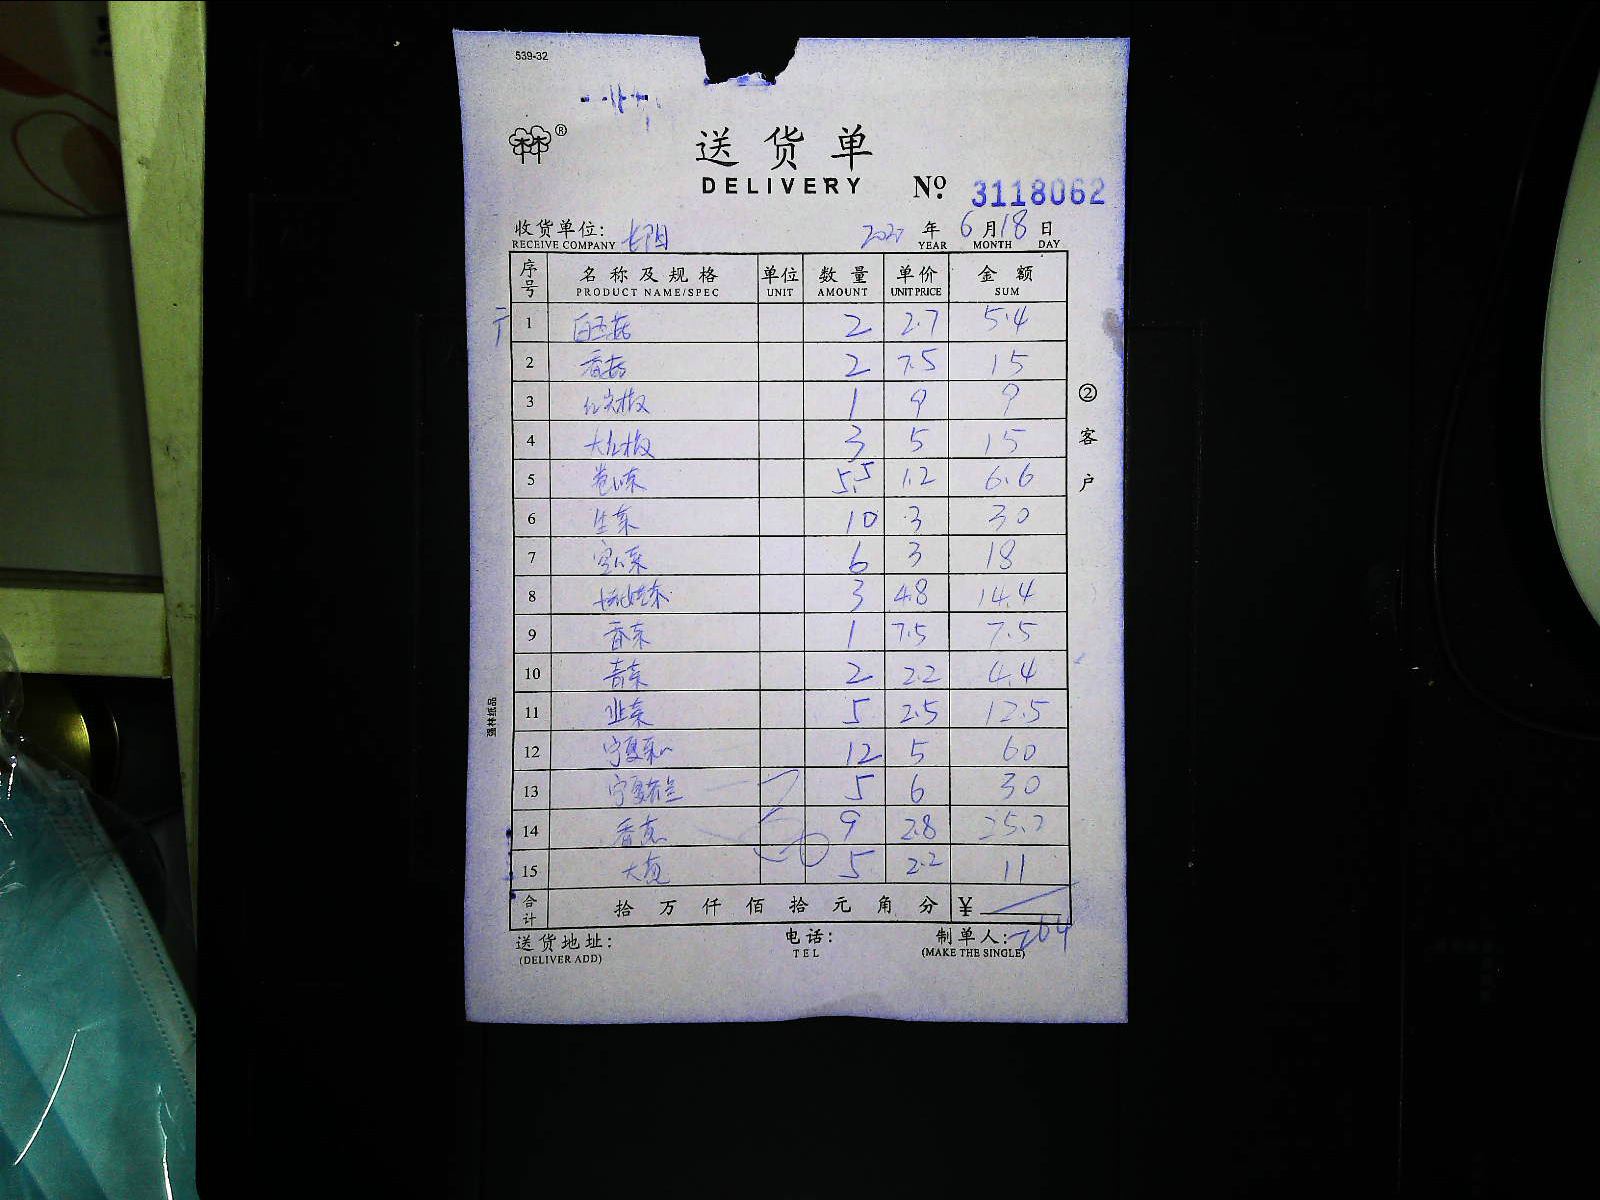 539-32
林®
送货单
DELIVERY
No. 3118062
收货单位: 长阳 年 6 月 18 日
RECEIVE COMPANY YEAR MONTH DAY
序号 名称及规格 单位 数量 单价 金额
PRODUCT NAME/SPEC UNIT AMOUNT UNIT PRICE SUM
1 白玉菇 2 2.7 5.4
2 香菇 2 7.5 15
3 红尖椒 1 9 9
4 大红椒 3 5 15
5 卷心菜 5.5 1.2 6.6
6 生菜 10 3 30
7 空心菜 6 3 18
8 3 4.8 14.4
9 香菜 1 7.5 7.5
10 青菜 2 2.2 4.4
11 韭菜 5 2.5 12.5
12 宁夏菜心 12 5 60
13 宁夏芥兰 5 6 30
14 香葱 9 2.8 25.2
15 大葱 5 2.2 11
合计 拾 万 仟 佰 拾 元 角 分 ¥
264
送货地址: 电话: 制单人:
(DELIVER ADD) TEL (MAKE THE SINGLE)
②客户
强林纸品